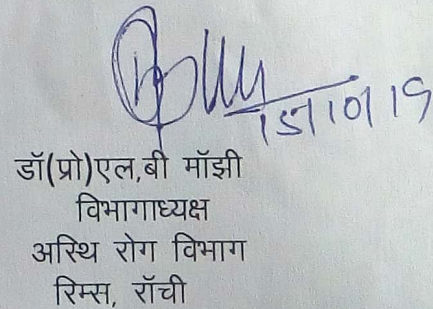 15/10/19
डॉ(प्रो)एल,बी मॉझी
विभागाध्यक्ष
अस्थि रोग विभाग
रिम्स, रॉची